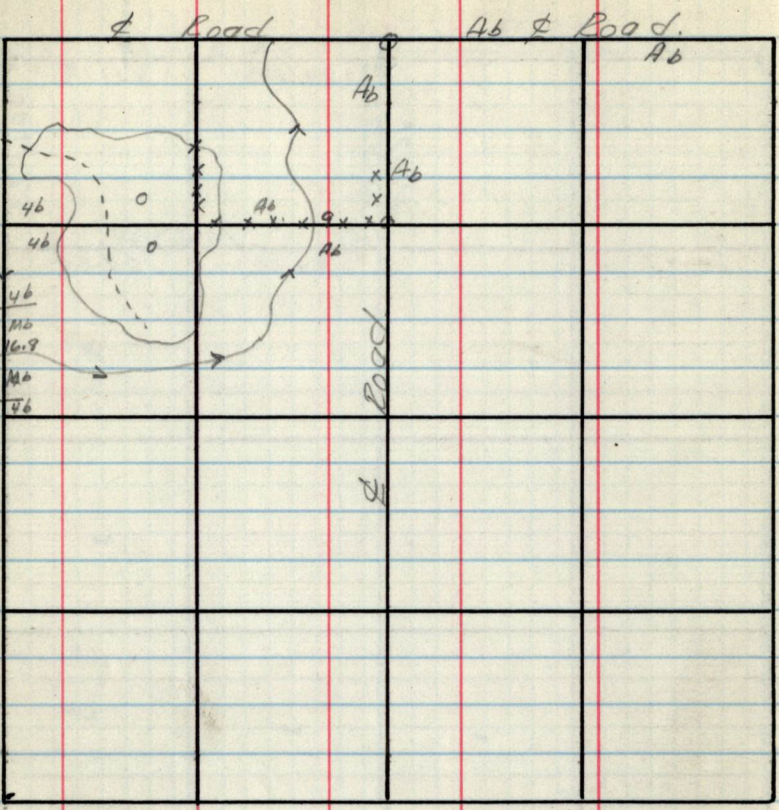 ℄ Road Ab ℄ Road.
Ab
Ab
Ab
4b
Ab
4b
Ab
4b
Mb
16.9
Ab
4b
℄ Road